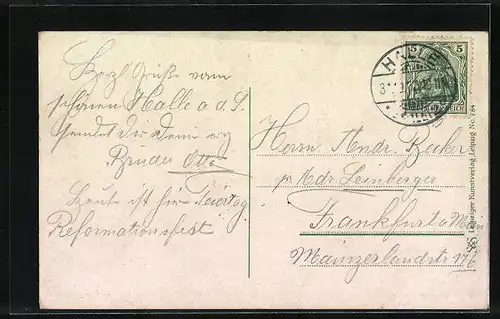 Herzl. Grüße vom
schönen Halle a. d. S.
sendet dir
Bruder Otto
Heute ist hier Feiertag
Reformationsfest
HALLE
5
Herrn Andr. Becker
p. Adr. Leinberger
Frankfurt a Main
Mainzerlandstr.
Leipziger Kunstverlag Leipzig No.